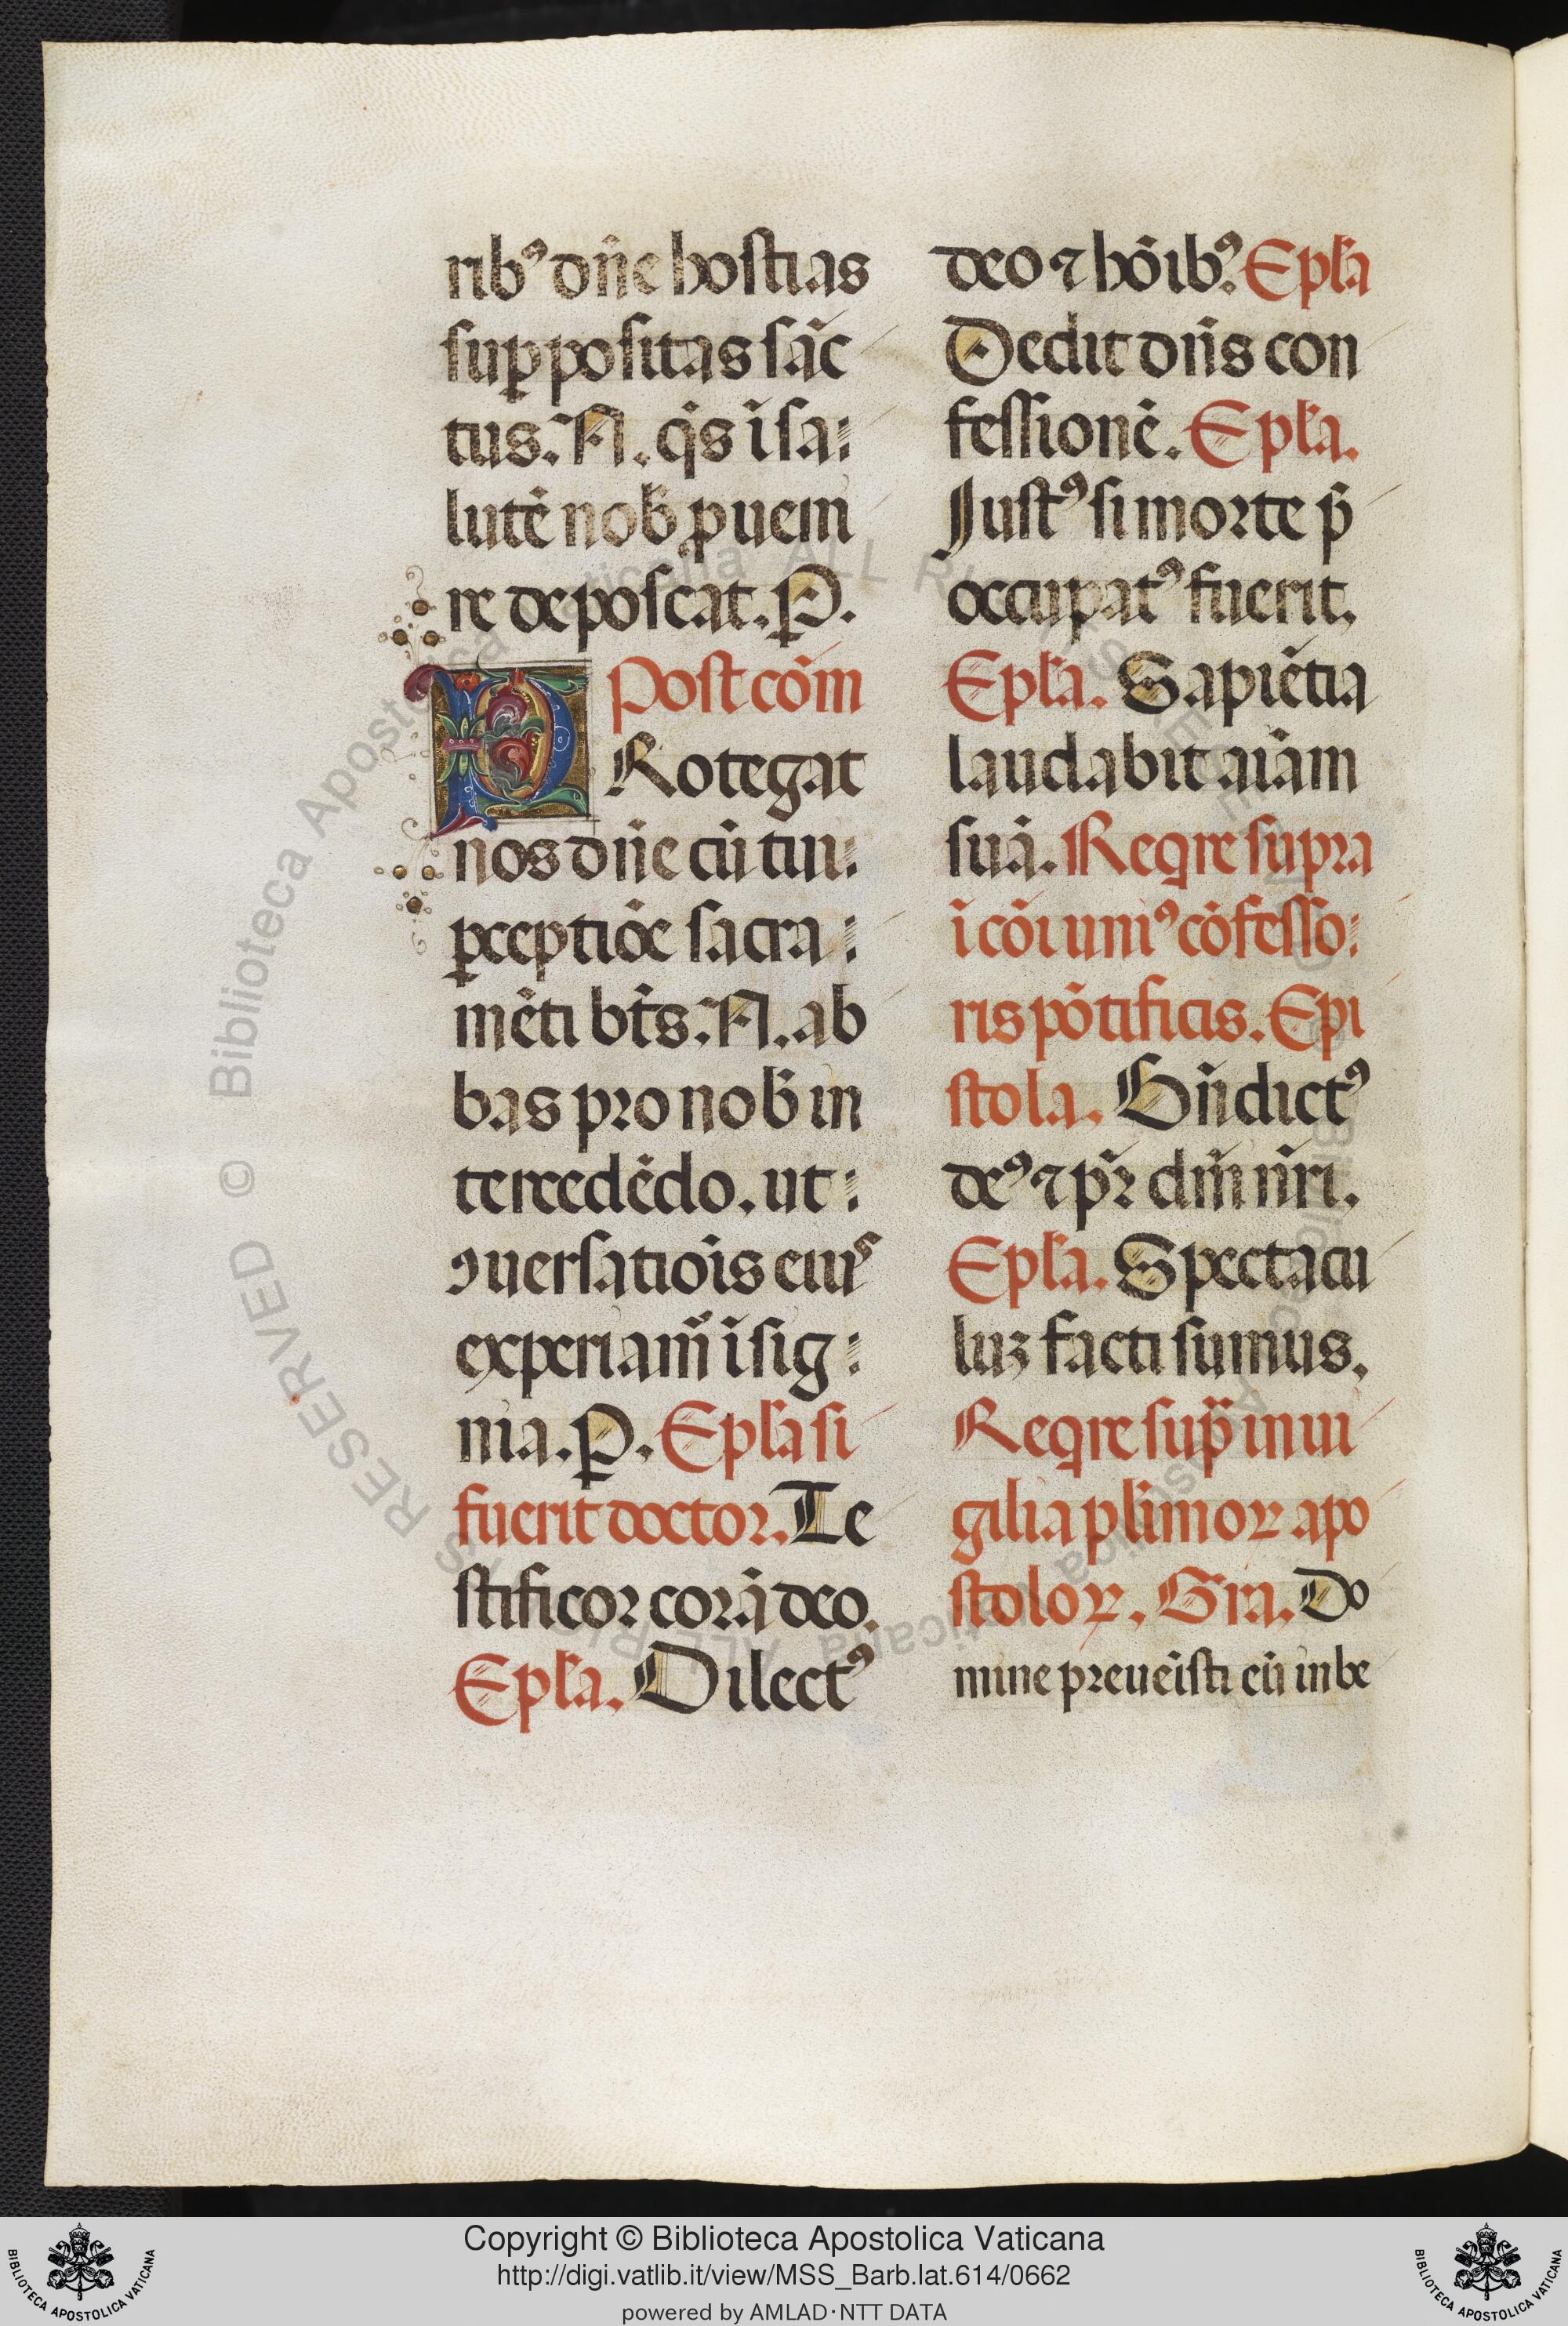 ribꝰ dn̄e hostias
suꝑpositas sāc
tus. N. q̄s ī sa
lutē nob̄ ꝓuem
re deposcat. P.
Post cōm
PRotegat
nos dn̄e cū tui
ꝑceptiōe sacra
mēti bt̄s. N. ab
bas pro nob̄ in
tercedēdo. ut
ꝯuersatiōis eiuˢ
experiam̄ īsig
nia. P. Epl̄a si
fuerit doctor. Te
stificor corā deo.
Epl̄a. Dilectꝰ
deo ⁊ hōibꝰ. Epl̄a
Dedit dn̄s con
fessionē. Epl̄a.
Iustꝰ si morte p̄
occupatꝰ fuerit.
Epl̄a. Sapiētia
laudabit aīam
suā. Reqͥre supra
ī cōi uniꝰ cōfesso
ris pōtificis. Epi
stola. Bn̄dictꝰ
deꝰ ⁊ pr̄ dn̄i nr̄i.
Epl̄a. Spectacu
luꝫ facti sumus.
Reqͥre sup̄ in ui
gilia pl̄imoꝝ apo
stoloꝝ. Gra. Do
mine preueīsti eū in be
© Biblioteca Apostolica Vaticana ALL RIGHTS RESERVED
Copyright © Biblioteca Apostolica Vaticana
http://digi.vatlib.it/view/MSS_Barb.lat.614/0662
powered by AMLAD·NTT DATA
BIBLIOTECA APOSTOLICA VATICANA
BIBLIOTECA APOSTOLICA VATICANA